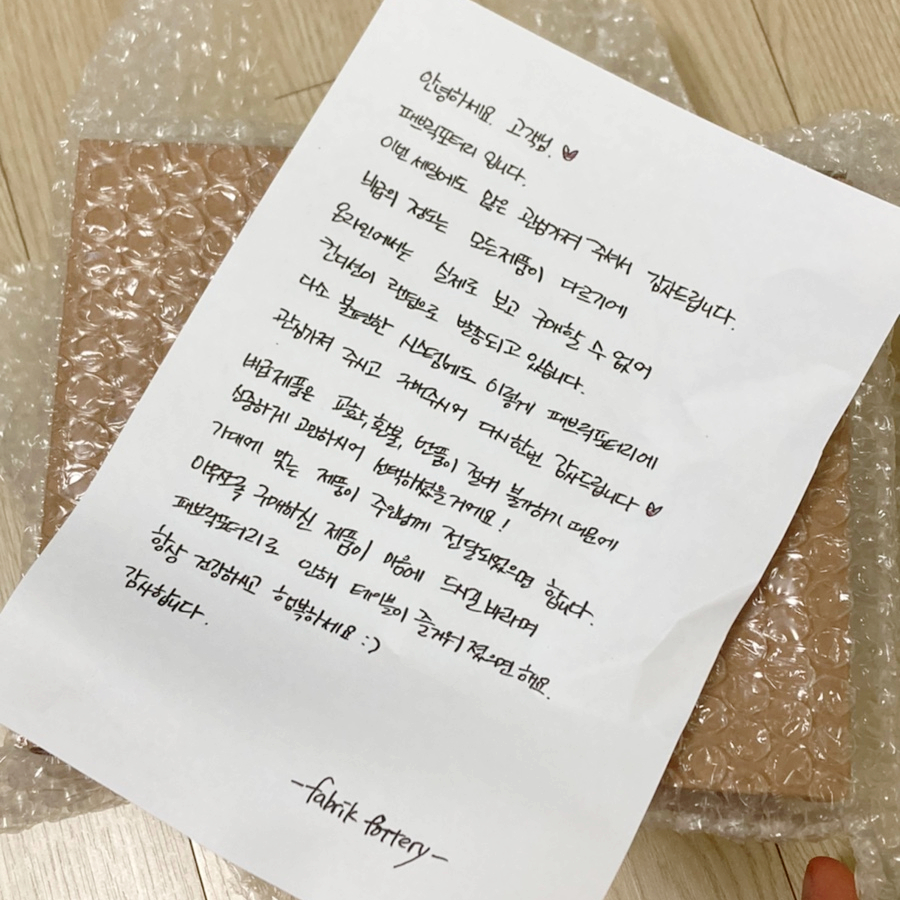 안녕하세요. 고객님.
패브릭포터리 입니다.
이번 세일에도 많은 관심가져 주셔서 감사드립니다.
B급의 정도는 모든제품이 다르기에
온라인에서는 실제로 보고 구매할 수 없어
컨디션이 랜덤으로 발송되고 있습니다.
다소 불편한 시스템에도 이렇게 패브릭포터리에
관심가져 주시고 구매주시어 다시한번 감사드립니다
B급제품은 교환, 환불, 반품이 절대 불가하기 때문에
신중하게 고민하시어 선택하셨을거에요!
기대에 맞는 제품이 주인님께 전달되었으면 합니다.
아무쪼록 구매하신 제품이 마음에 드시길 바라며
패브릭포터리로 인해 테이블이 즐거워 졌으면 해요.
항상 건강하시고 행복하세요 :)
감사합니다.
-fabrik pottery-